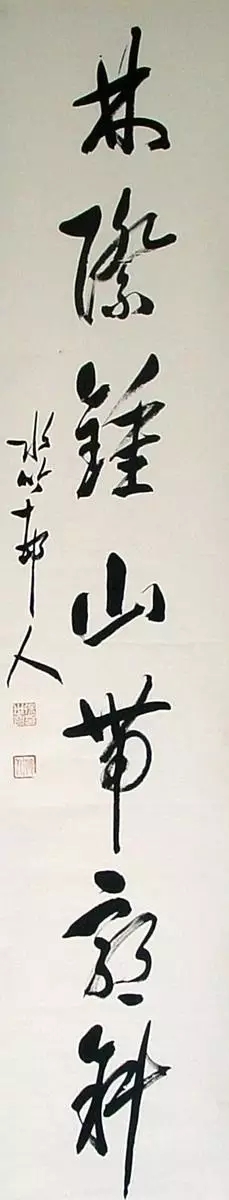 林際鍾山帶郭斜
水竹邨人